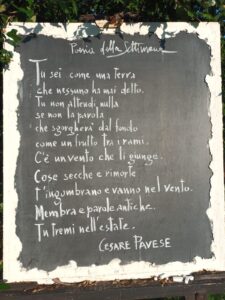 Poesia della Settimana
Tu sei come una terra
che nessuno ha mai detto.
Tu non attendi nulla
se non la parola
che sgorgherà dal fondo
come un frutto tra i rami.
C'è un vento che ti giunge.
Cose secche e rimorte
t'ingombrano e vanno nel vento.
Membra e parole antiche.
Tu tremi nell'estate.
CESARE PAVESE